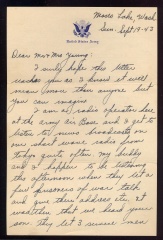 Moses Lake, Wash
Sun. Sept 19-43
United States Army
Dear Mr & Mrs Young:
I only hope this letter
reaches you as I know it will
mean more than anyone but
you can imagine
I am a radio operator here
at the army air Base and I get to
listen to news broadcasts on
our short wave radio from
Tokyo quite often. My buddy
and I happen to be listening
this afternoon when they let a
few prisoners of war talk
and give their address etc. It
was then that we heard your
son they let 3 more men